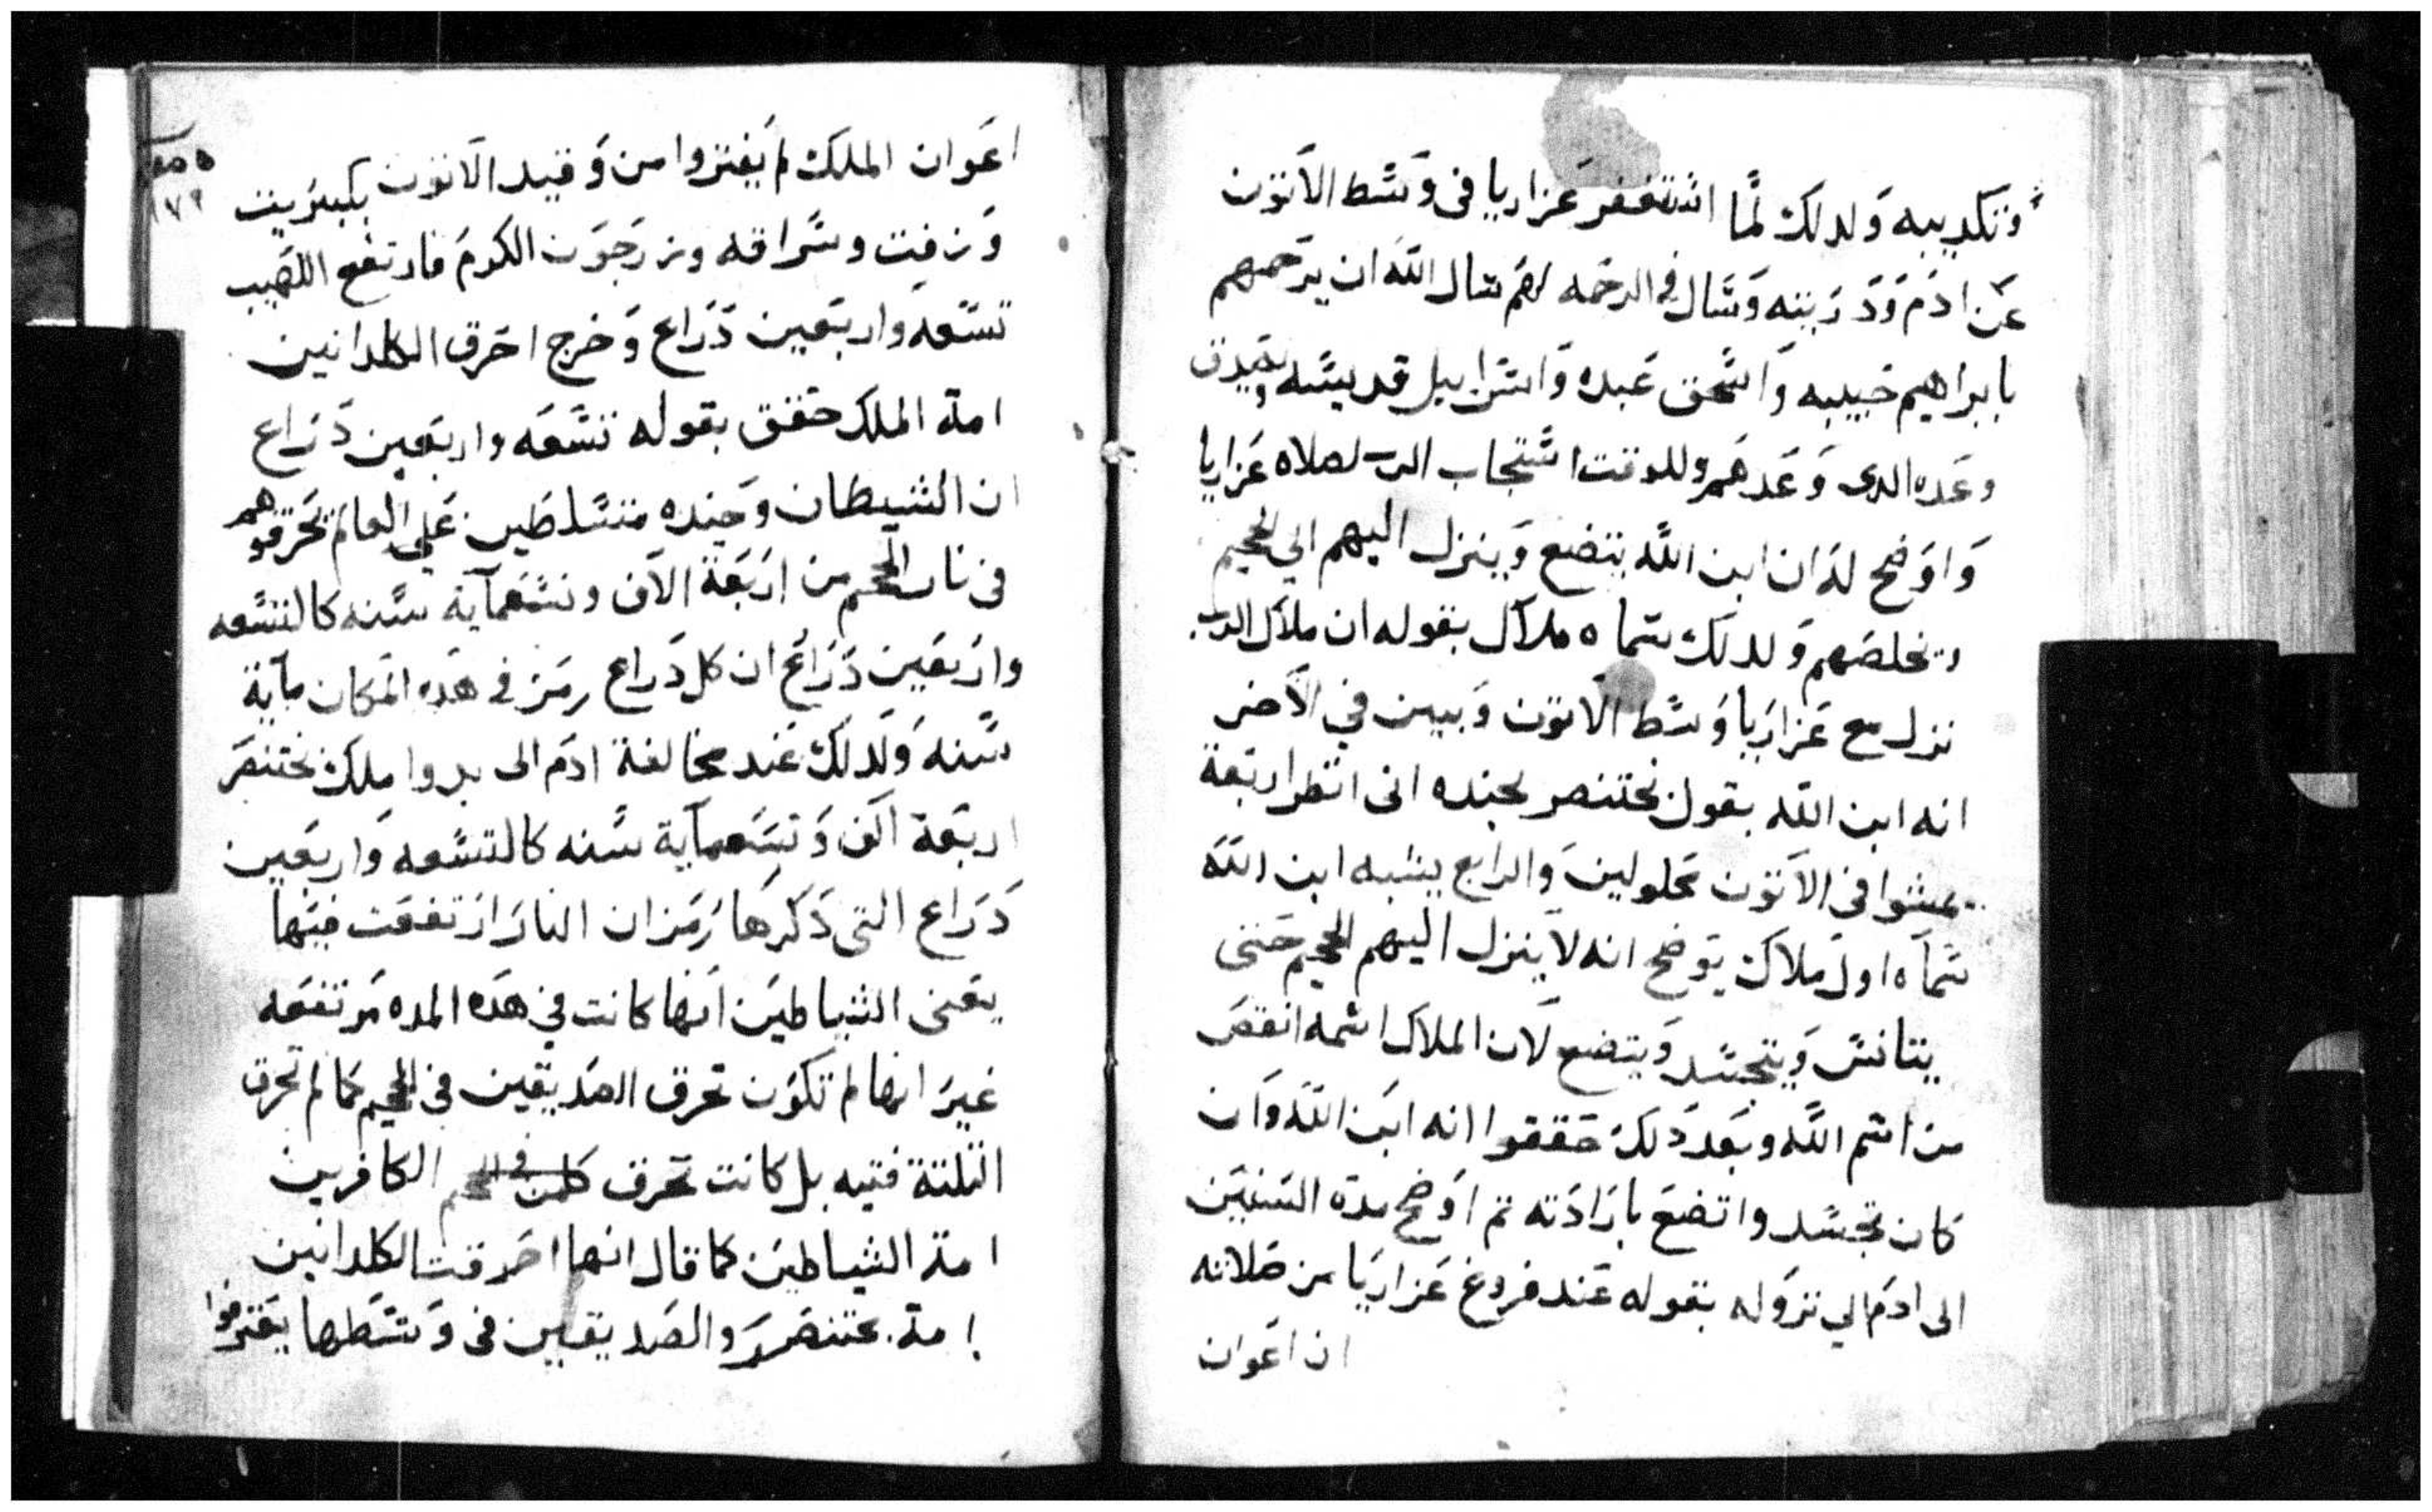 وتكديبه ولدلك لما استغفر عزاريا في وسط الاتون
عن ادم ودريته وسال في الرحمه لهم سال الله ان يرحمهم
بابراهيم حبيبه واسحق عبده واسراييل قديسه
وعده الدى وعدهم وللوقت استجاب الرب لصلاه عزاريا
واوضح له ان ابن الله يتضع وينزل اليهم الي الجحيم
ويخلصهم ولدلك سماه ملاك بقوله ان ملاك الرب
نزل مع عزاريا وسط الاتون وبين في الاخر
انه ابن الله بقول بختنصر لجنده انى انظر اربعة
يمشوا في الاتون محلولين والرابع يشبه ابن الله
سماه اول ملاك يوضح انه لا ينزل اليهم الجحيم حتى
يتانس ويتجسد ويتضع لان الملاك اسمه انقص
من اسم الله وبعد دلك حققوا انه ابن الله وان
كان تجسد واتضع بارادته تم اوضح مدة السنين
الى ادم الي نزوله بقوله عند فروغ عزاريا من صلاته
ان اعوان
اعوان الملك لم يفتروا من وقيد الاتون بكبريت
وزفت وسراقه وزرجون الكرم فارتفع اللهيب
تسعه واربعين دراع وخرج احرق الكلدانين
امة الملك حقق بقوله تسعه واربعين دراع
ان الشيطان وجنده متسلطين على العالم تحرقوهم
في نار الجحيم من اربعة الاف وتسعماية سنه كالتسعه
واربعين دراع ان كل دراع رمز في هده المكان ماية
سنه ولدلك عند مخالفة ادم الى بدوا ملك بختنصر
اربعة الف وتسعماية سنه كالتسعه واربعين
دراع التى دكرها رمز ان النار ارتفعت فيها
يعنى الشياطين انها كانت في هده المده مرتفعه
غير انها لم تكون تحرق الصديقين في الجحيم كما لم تحرق
التلتة فتيه بل كانت تحرق في الجحيم الكافرين
امة الشياطين كما قال انها احرقت الكلدانين
امة بختنصر والصديقين في وسطها يعترفوا
١٧٩